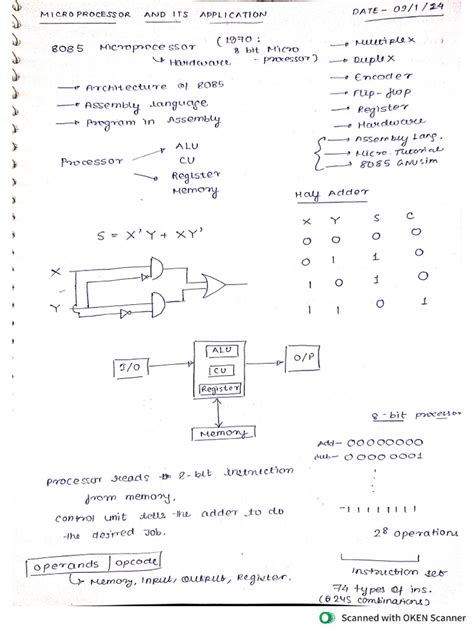 MICROPROCESSOR AND ITS APPLICATION
DATE - 09/1/24
8085 Microprocessor (1970:
8 bit Micro
-processor)
↳ Hardware
→ Architecture of 8085
→ Assembly language
→ Program in Assembly
→ Multiplex
→ Duplex
→ Encoder
→ Flip-flop
→ Register
→ Hardware
→ Assembly Lang.
→ Micro. Tutorial
→ 8085 GNUsim
Processor → ALU
CU
→ Register
Memory
Half Adder
X Y S C
0 0 0 0
0 1 1 0
1 0 1 0
1 1 0 1
S = X'Y + XY'
X
Y
I/O
ALU
CU
Register
O/P
Memory
8-bit processor
Add- 00000000
Sub- 00000001
-11111111
2⁸ operations
Processor reads 8-bit instruction
from memory.
Control unit tells the adder to do
the desired job.
operands | opcode
↳ Memory, Input, Output, Register.
Instruction set
74 types of ins.
(@ 245 combinations)
Scanned with OKEN Scanner